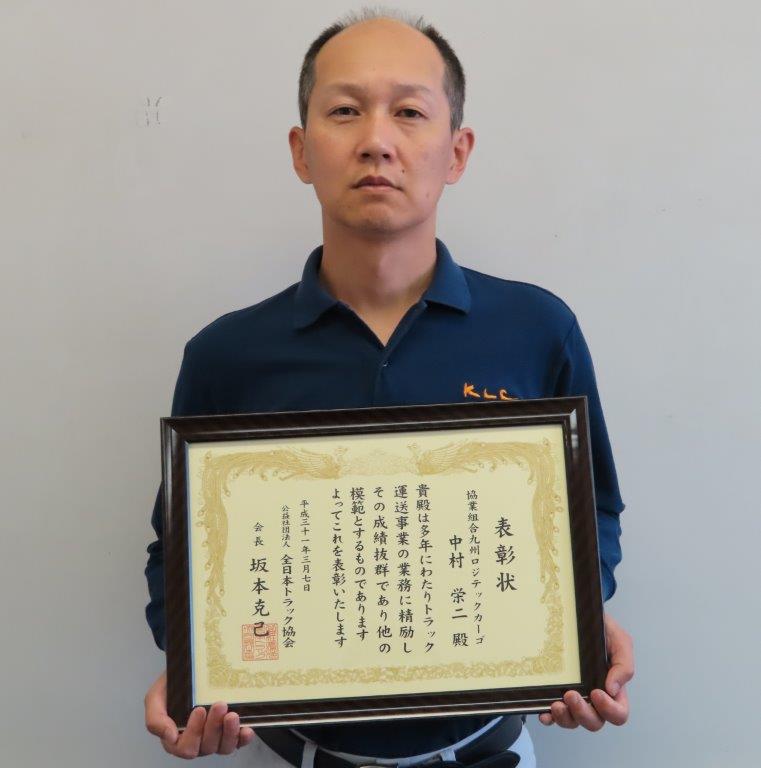 表彰状
協業組合九州ロジテックカーゴ
中村 栄二 殿
貴殿は多年にわたりトラック
運送事業の業務に精励し
その成績抜群であり他の
模範とするものであります
よってこれを表彰いたします
平成三十一年三月七日
公益社団法人 全日本トラック協会
会長 坂本克己
KLC